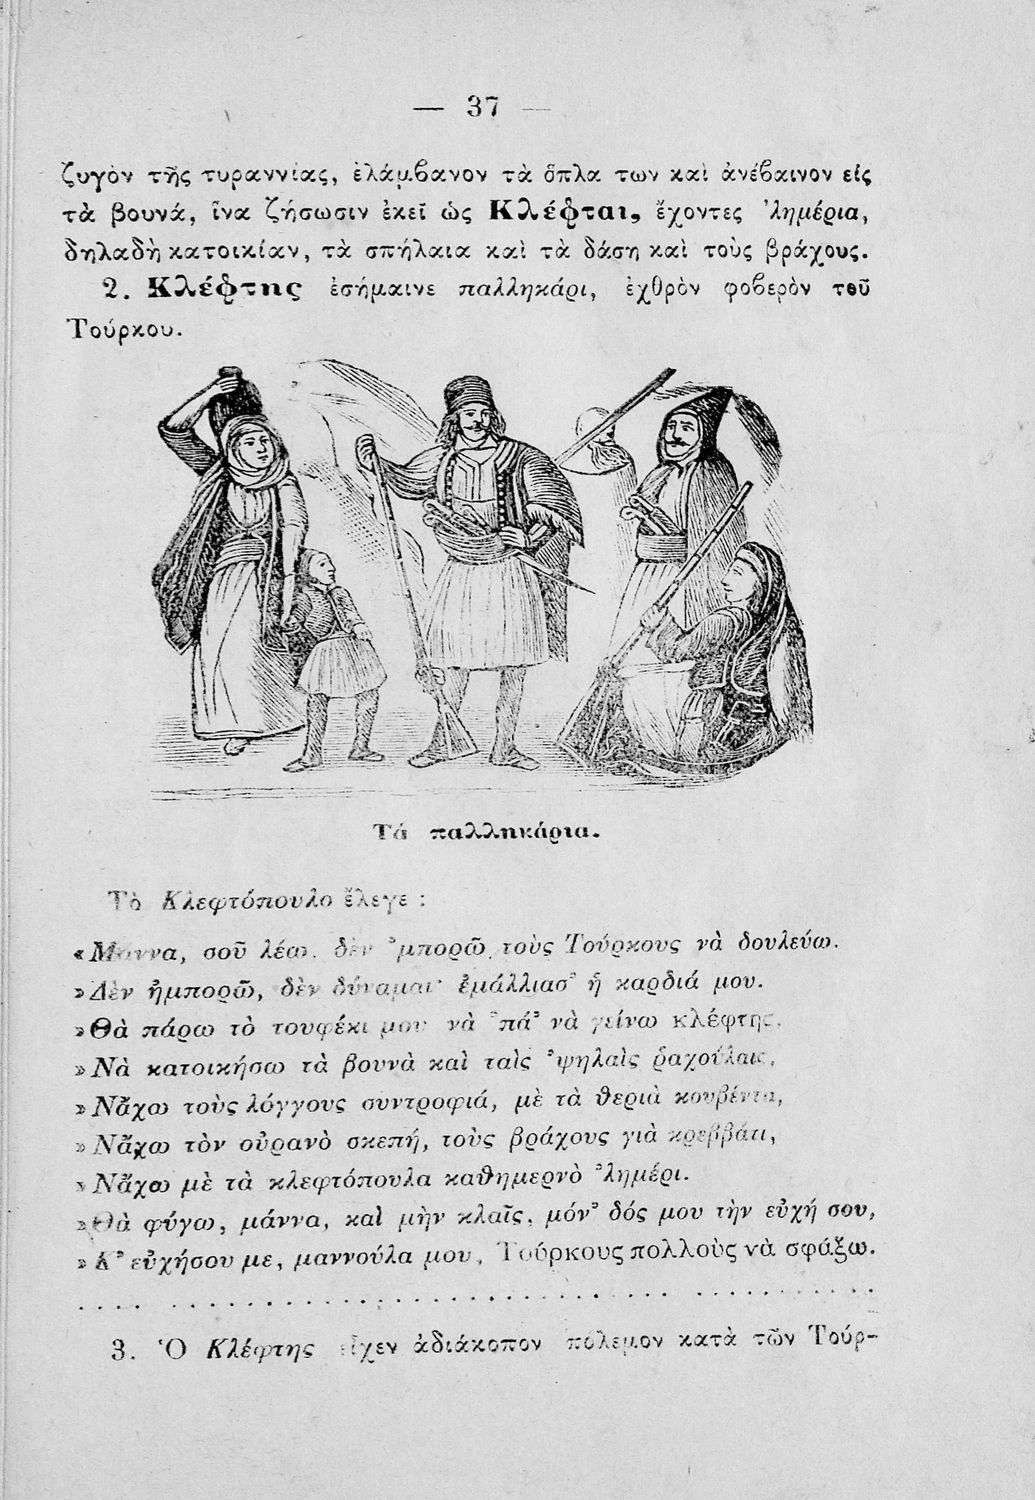 — 37 —
ζυγὸν τῆς τυραννίας, ἐλάμβανον τὰ ὅπλα των καὶ ἀνέβαινον εἰς
τὰ βουνά, ἵνα ζήσωσιν ἐκεῖ ὡς Κλέφται, ἔχοντες 'λημέρια,
δηλαδὴ κατοικίαν, τὰ σπήλαια καὶ τὰ δάση καὶ τοὺς βράχους.
2. Κλέφτης ἐσήμαινε παλληκάρι, ἐχθρὸν φοβερὸν τοῦ
Τούρκου.
Τὰ παλληκάρια.
Τὸ Κλεφτόπουλο ἔλεγε :
«Μάννα, σοῦ λέω, δὲν 'μπορῶ τοὺς Τούρκους νὰ δουλεύω.
»Δὲν ἠμπορῶ, δὲν δύναμαι· ἐμάλλιασ' ἡ καρδιά μου.
»Θὰ πάρω τὸ τουφέκι μου νὰ 'πά' νὰ γείνω κλέφτης,
»Νὰ κατοικήσω τὰ βουνὰ καὶ ταὶς 'ψηλαὶς ῥαχούλαις,
»Νἄχω τοὺς λόγγους συντροφιά, μὲ τὰ θεριὰ κουβέντα,
»Νἄχω τὸν οὐρανὸ σκεπή, τοὺς βράχους γιὰ κρεββάτι,
»Νἄχω μὲ τὰ κλεφτόπουλα καθημερνὸ 'λημέρι.
»Θὰ φύγω, μάννα, καὶ μὴν κλαῖς, μόν' δός μου τὴν εὐχή σου,
»Κ' εὐχήσου με, μαννούλα μου, Τούρκους πολλοὺς νὰ σφάξω.
. . . . . . . . . . . . . . . . . . . . . . . . . . . . . . . . . . . . . . . .
3. Ὁ Κλέφτης εἶχεν ἀδιάκοπον πόλεμον κατὰ τῶν Τούρ-